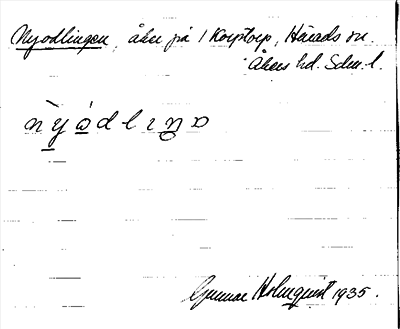 Nyodlingen, åker på 1 Korptorp, Härads sn.
Åkers hd. Sdm. l.
Gunnar Holmquist 1935.